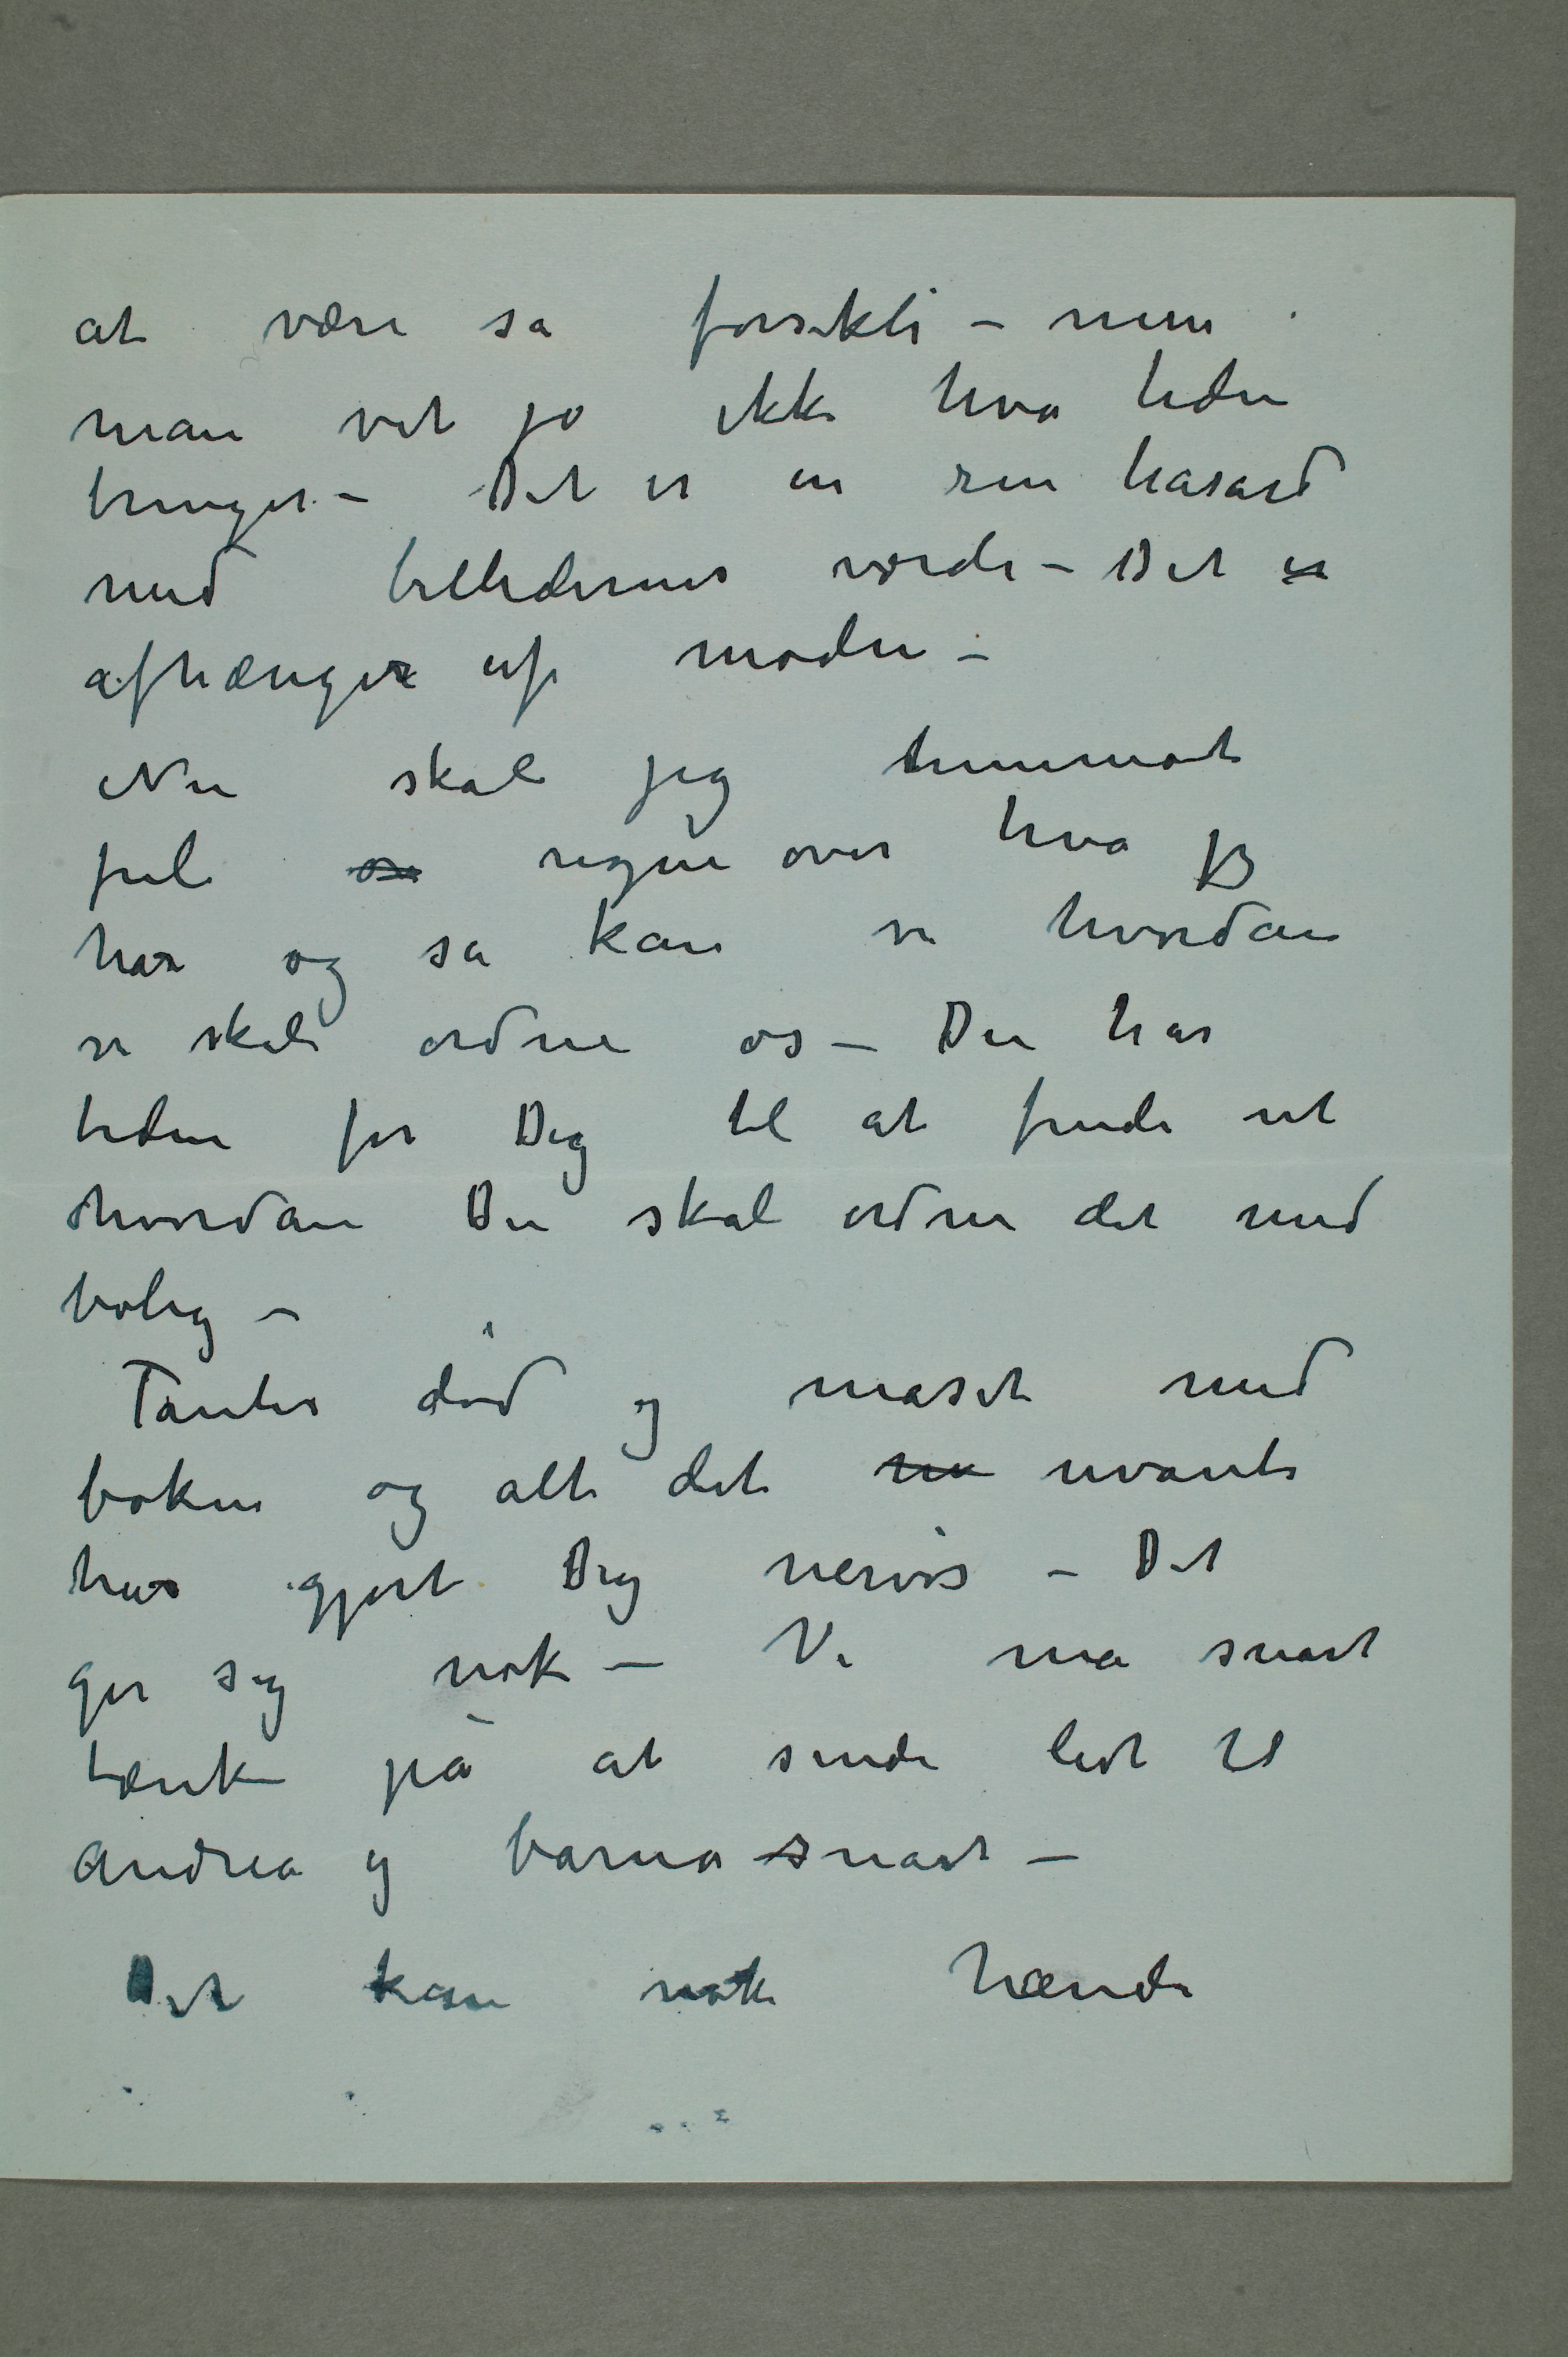 at være så forsikti – men
man vet jo ikke hva tiden
bringer – Det er en ren hasard
med billedernes værdi – Det er
afhænger af moden –
Nu skal jeg
jul om regne over hva jeg
har og så kan vi hvordan
vi skal ordne os – Du har
tiden for Dig til at finde ut
hvordan Du skal ordne det med
bolig –
Tantes død og maset med
boken og alt det nu uvante
har gjort Dig nervøs – Det
ger sig nok – Vi må snart
tænke på at sende lidt til
Andrea og barna snart –
Det kan nok hænde